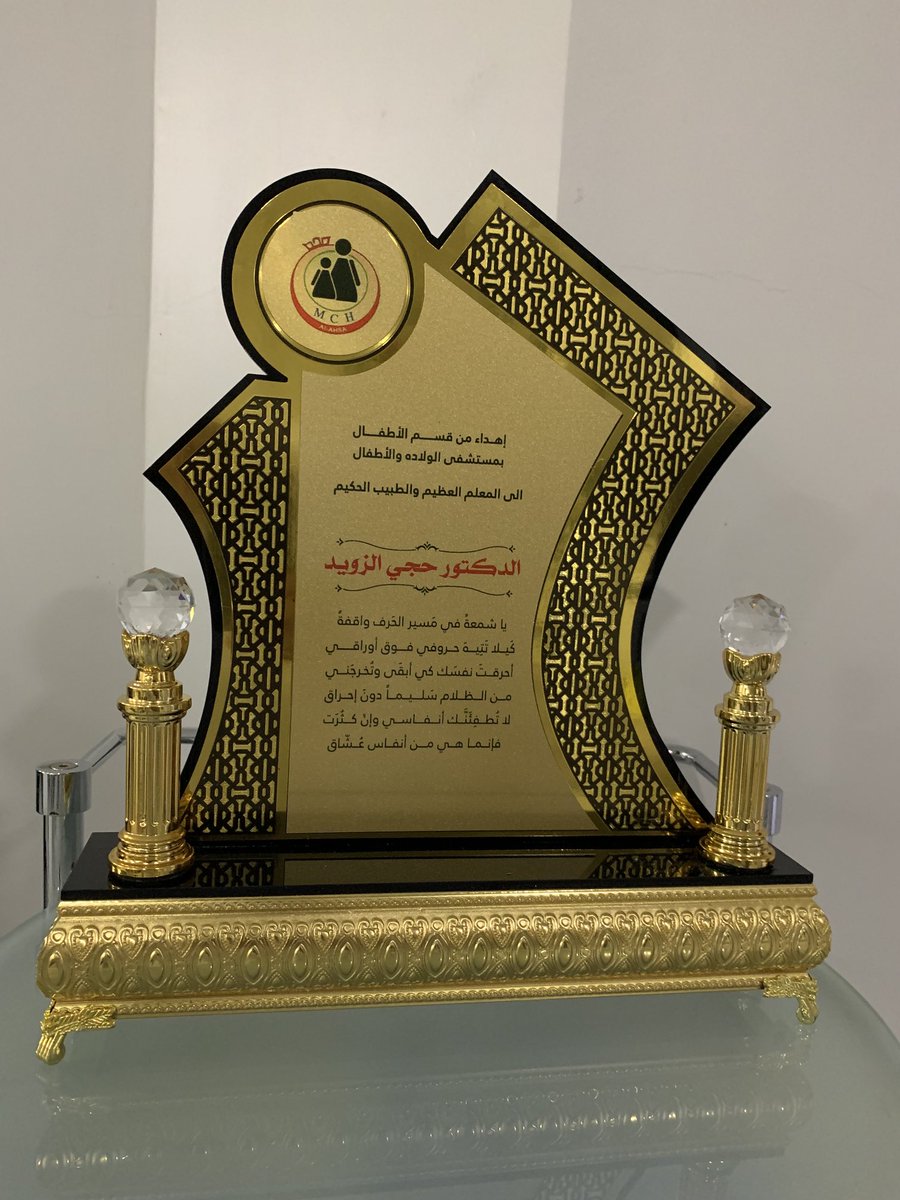 MCH
AL-AHSA
إهداء من قسم الأطفال
بمستشفى الولاده والأطفال
الى المعلم العظيم والطبيب الحكيم
الدكتور حجي الزويد
يا شمعةً في مَسير الحَرف واقفةً
كَيلا تَتِيهَ حروفي فوق أوراقي
أحرقتَ نفسَك كي أبقَى وتُخرجَني
من الظلام سَليماً دونَ إحراق
لا تُطفِئَنَّك أنفاسي وإنْ كثُرَت
فإنما هي من أنفاس عُشّاق